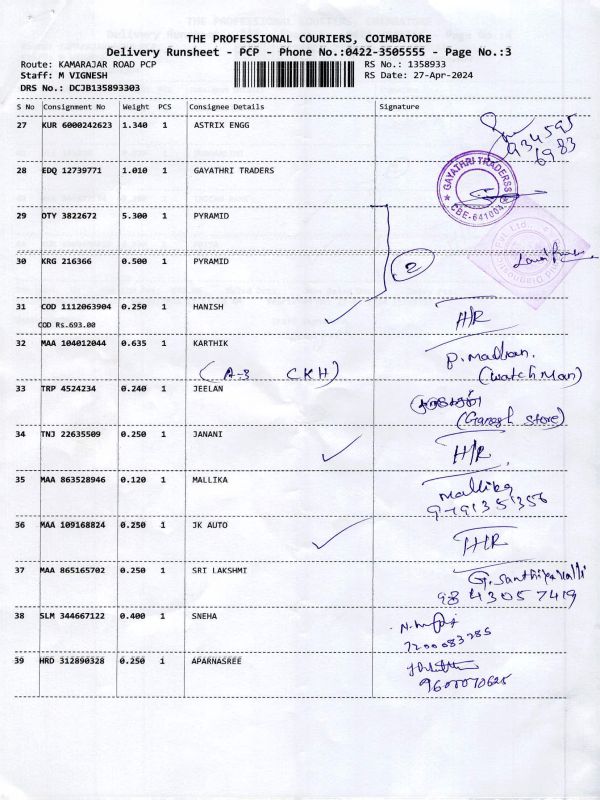 THE PROFESSIONAL COURIERS, COIMBATORE
Delivery Runsheet - PCP - Phone No.:0422-3505555 - Page No.:3
Route: KAMARAJAR ROAD PCP RS No.: 1358933
Staff: M VIGNESH RS Date: 27-Apr-2024
DRS No.: DCJB135893303
S No Consignment No Weight PCS Consignee Details Signature
27 KUR 6000242623 1.340 1 ASTRIX ENGG
934595
6983
28 EDQ 12739771 1.010 1 GAYATHRI TRADERS
GAYATHRI TRADERSS
CBE-641004
29 OTY 3822672 5.300 1 PYRAMID
30 KRG 216366 0.500 1 PYRAMID
2
31 COD 1112063904 0.250 1 HANISH H/R
COD Rs.693.00
32 MAA 104012044 0.635 1 KARTHIK P. Madhan.
(A-3 CKH) (Watch Man)
33 TRP 4524234 0.240 1 JEELAN
(Ganesh Store)
34 TNJ 22635509 0.250 1 JANANI H/R
35 MAA 863528946 0.120 1 MALLIKA Mallika
9791351356
36 MAA 109168824 0.250 1 JK AUTO H/R
37 MAA 865165702 0.250 1 SRI LAKSHMI
9843057419
38 SLM 344667122 0.400 1 SNEHA
7200083285
39 HRD 312890328 0.250 1 APARNASREE
9600070625